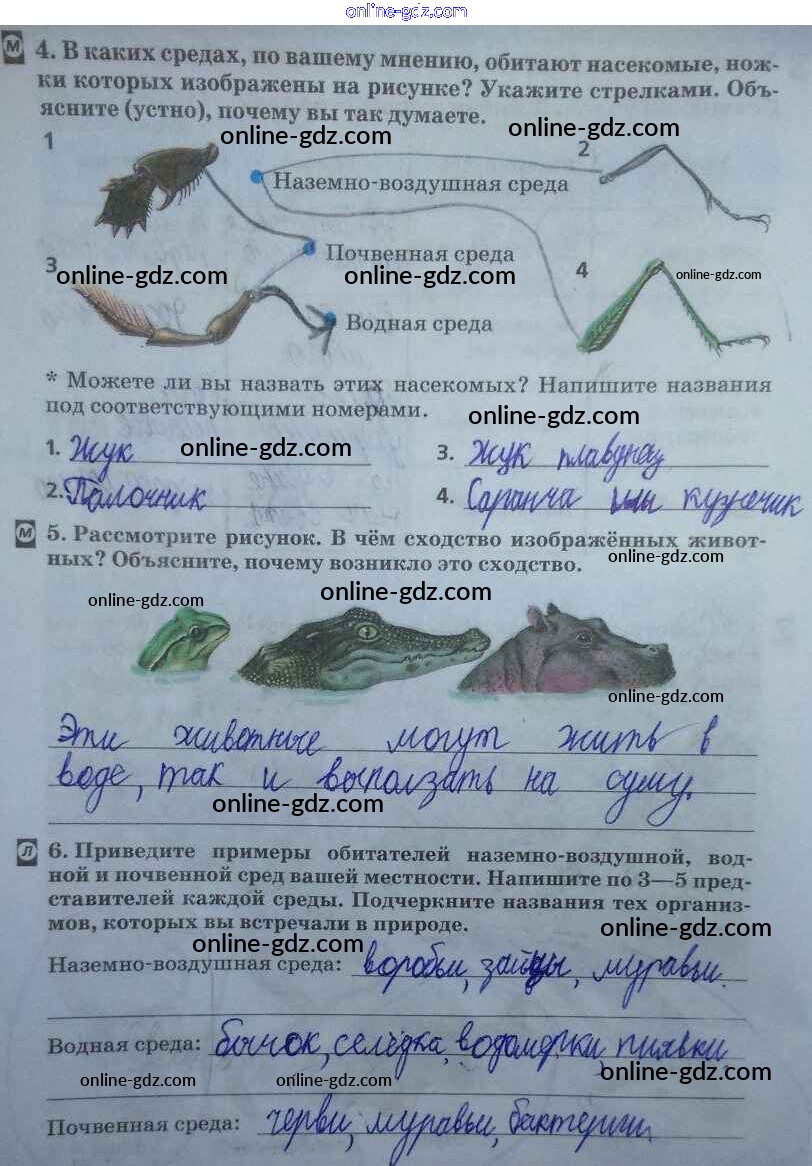 online-gdz.com
М 4. В каких средах, по вашему мнению, обитают насекомые, нож-
ки которых изображены на рисунке? Укажите стрелками. Объ-
ясните (устно), почему вы так думаете.
online-gdz.com online-gdz.com
1 2
Наземно-воздушная среда
Почвенная среда
3 online-gdz.com online-gdz.com 4 online-gdz.com
Водная среда
* Можете ли вы назвать этих насекомых? Напишите названия
под соответствующими номерами.
online-gdz.com
1. Жук online-gdz.com 3. Жук плавунец
2. Палочник 4. Саранча или кузнечик
М 5. Рассмотрите рисунок. В чём сходство изображённых живот-
ных? Объясните, почему возникло это сходство.
online-gdz.com
online-gdz.com online-gdz.com
online-gdz.com
Эти животные могут жить в
воде, так и выползать на сушу.
online-gdz.com
Л 6. Приведите примеры обитателей наземно-воздушной, вод-
ной и почвенной сред вашей местности. Напишите по 3—5 пред-
ставителей каждой среды. Подчеркните названия тех организ-
мов, которых вы встречали в природе.
online-gdz.com online-gdz.com
Наземно-воздушная среда: воробьи, зайцы, муравьи.
Водная среда: бычок, селёдка, водомерки, пиявки
online-gdz.com online-gdz.com online-gdz.com
Почвенная среда: черви, муравьи, бактерии.